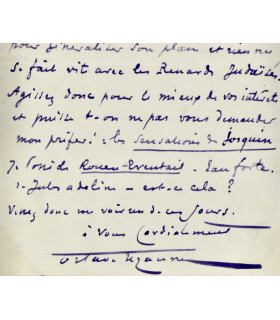 pour généraliser son plan et rien ne
se fait vite avec les Renards Judaïsés.
Agissez donc pour le mieux de vos intérêts
et puisse t-on ne pas vous demander
mon préféré : les sensations de Josquin
7. Rouen-Eventail. Eau forte.
Jules adeline — est-ce cela ?
Venez donc me voir un d ces jours.
à vous Cordialement
octave uzanne